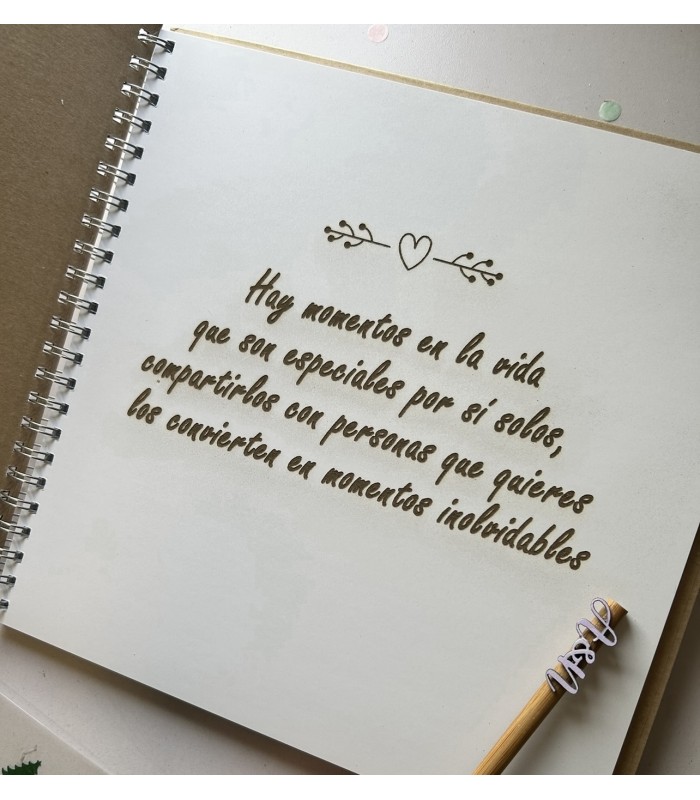 Hay momentos en la vida
que son especiales por sí solos,
compartirlos con personas que quieres
los convierten en momentos inolvidables
A&N